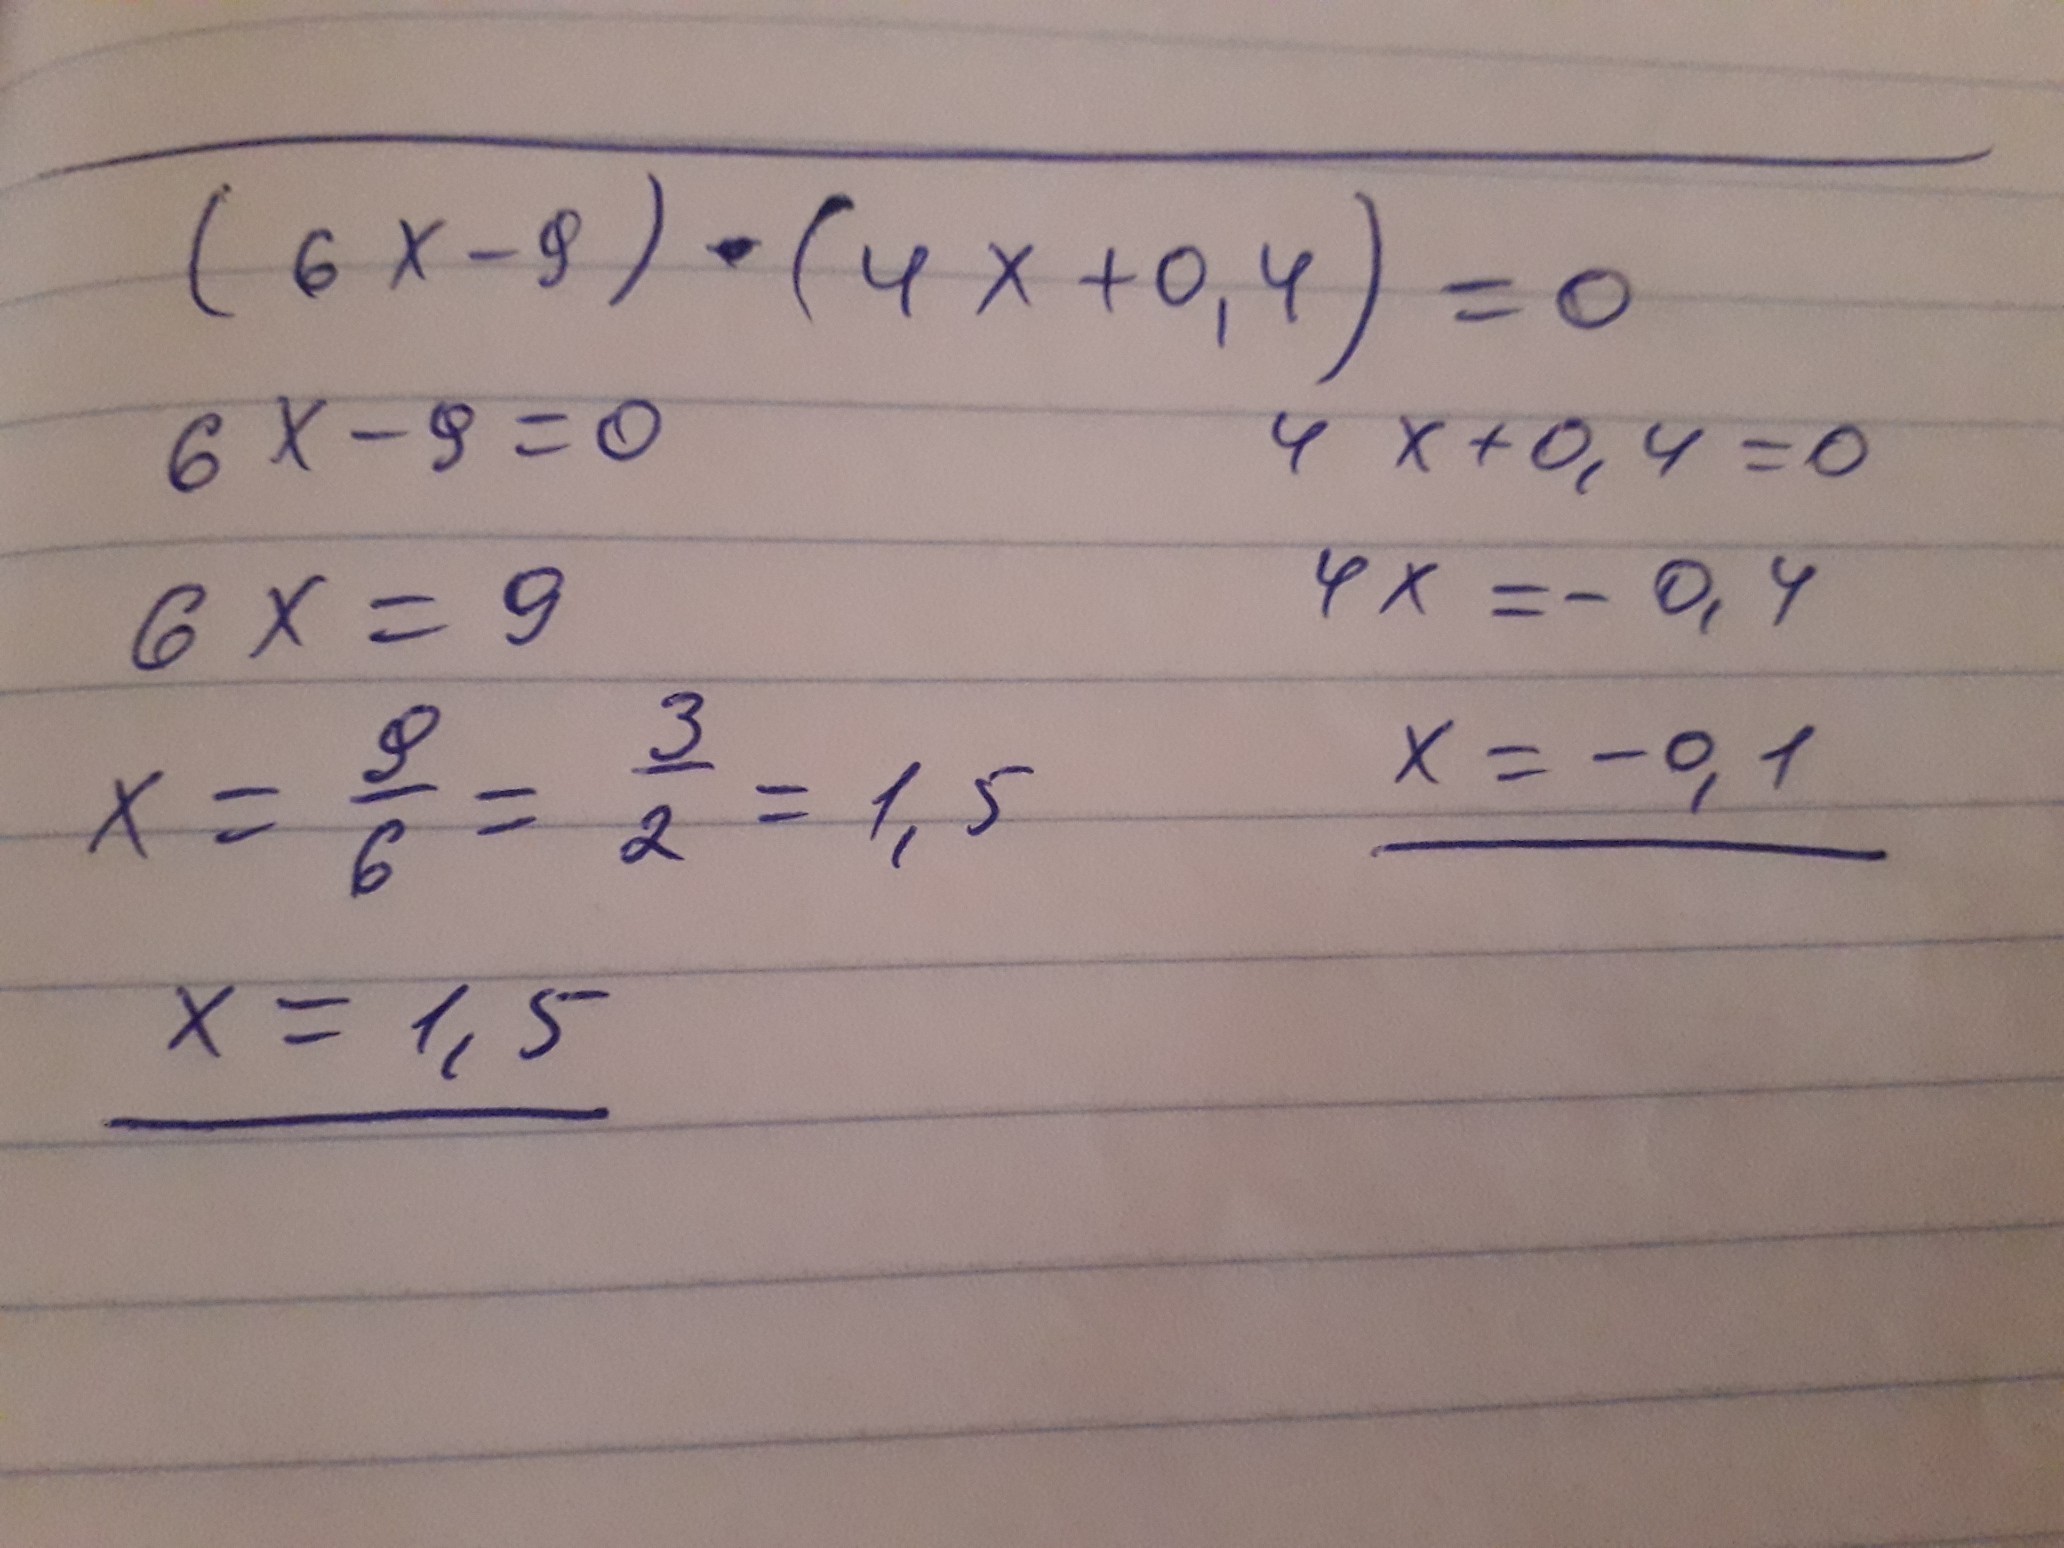 (6x-9)·(4x+0,4)=0
6x-9=0 4x+0,4=0
6x=9 4x=-0,4
x=9/6=3/2=1,5 x=-0,1
x=1,5